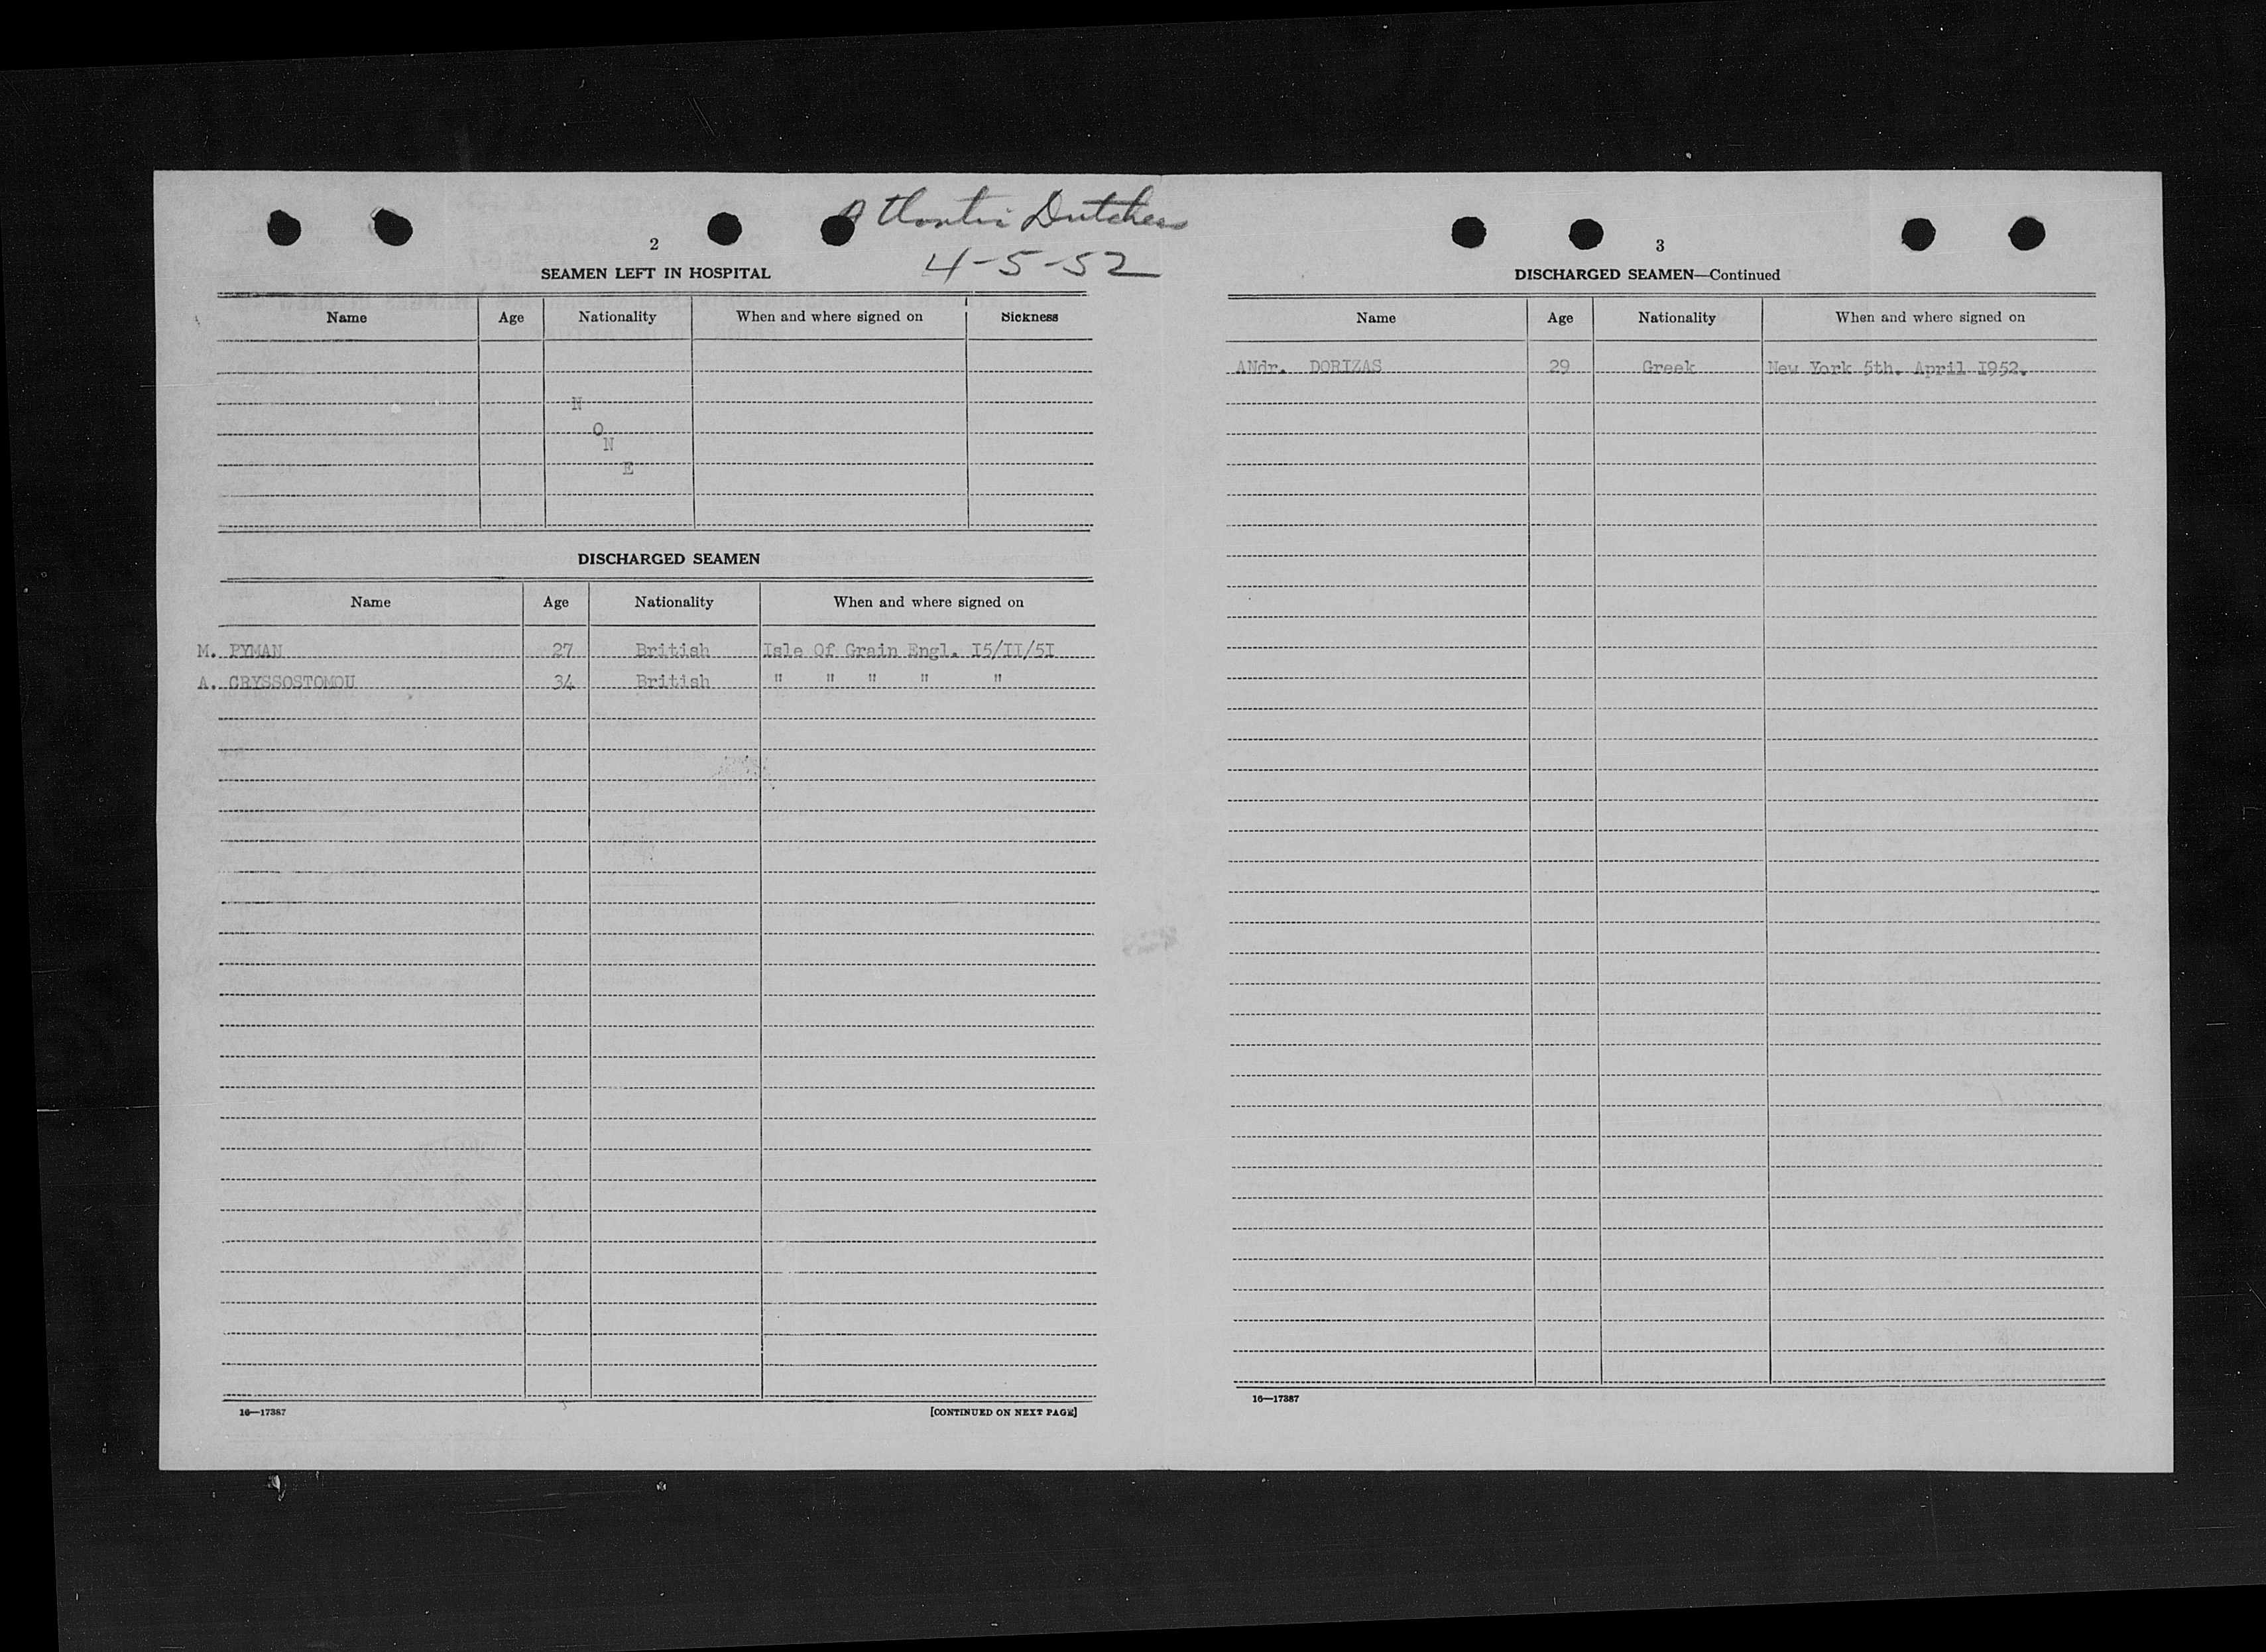 Atlantic Dutchess
4-5-52
2
SEAMEN LEFT IN HOSPITAL
Name Age Nationality When and where signed on Sickness
N
O
N
E
DISCHARGED SEAMEN
Name Age Nationality When and where signed on
M. PYMAN 27 British Isle Of Grain Engl. I5/II/5I
A. CRYSSOSTOMOU 34 British " " " " "
16—17387 [CONTINUED ON NEXT PAGE]
3
DISCHARGED SEAMEN—Continued
Name Age Nationality When and where signed on
ANdr. DORIZAS 29 Greek New York 5th. April I952.
16—17387